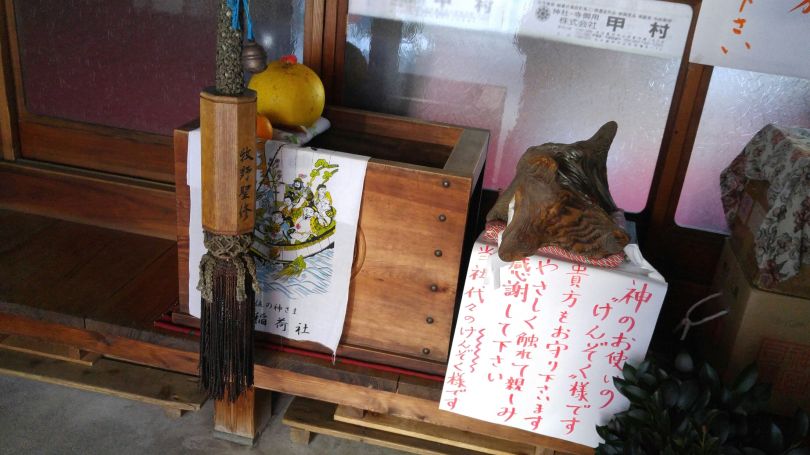 神社・寺御用
株式会社 甲村
下さい
牧野聖修
神のお使いの
"げんぞく"様です
貴方をお守り下さいます
やさしく触れて親しみ
感謝して下さい
当社代々のけんぞく様です
位の神さま
稲荷社